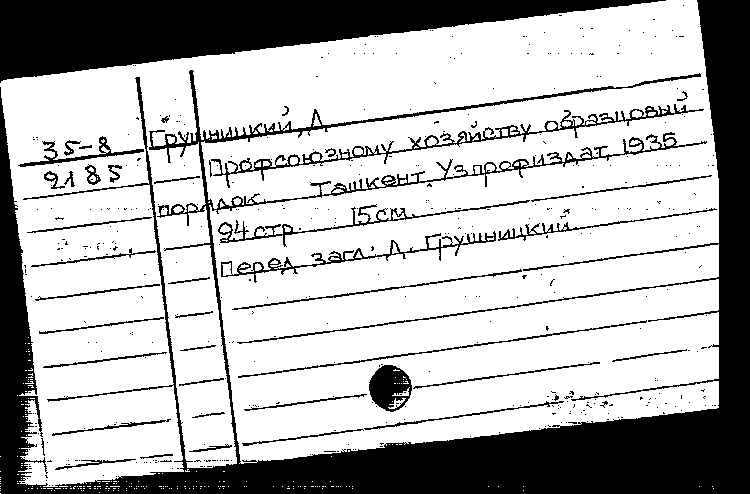 35-8
2185
Грушницкий, Д.
Профсоюзному хозяйству образцовый
порядок. Ташкент, Узпрофиздат, 1935
24 стр. 15 см.
Перед загл: Д. Грушницкий